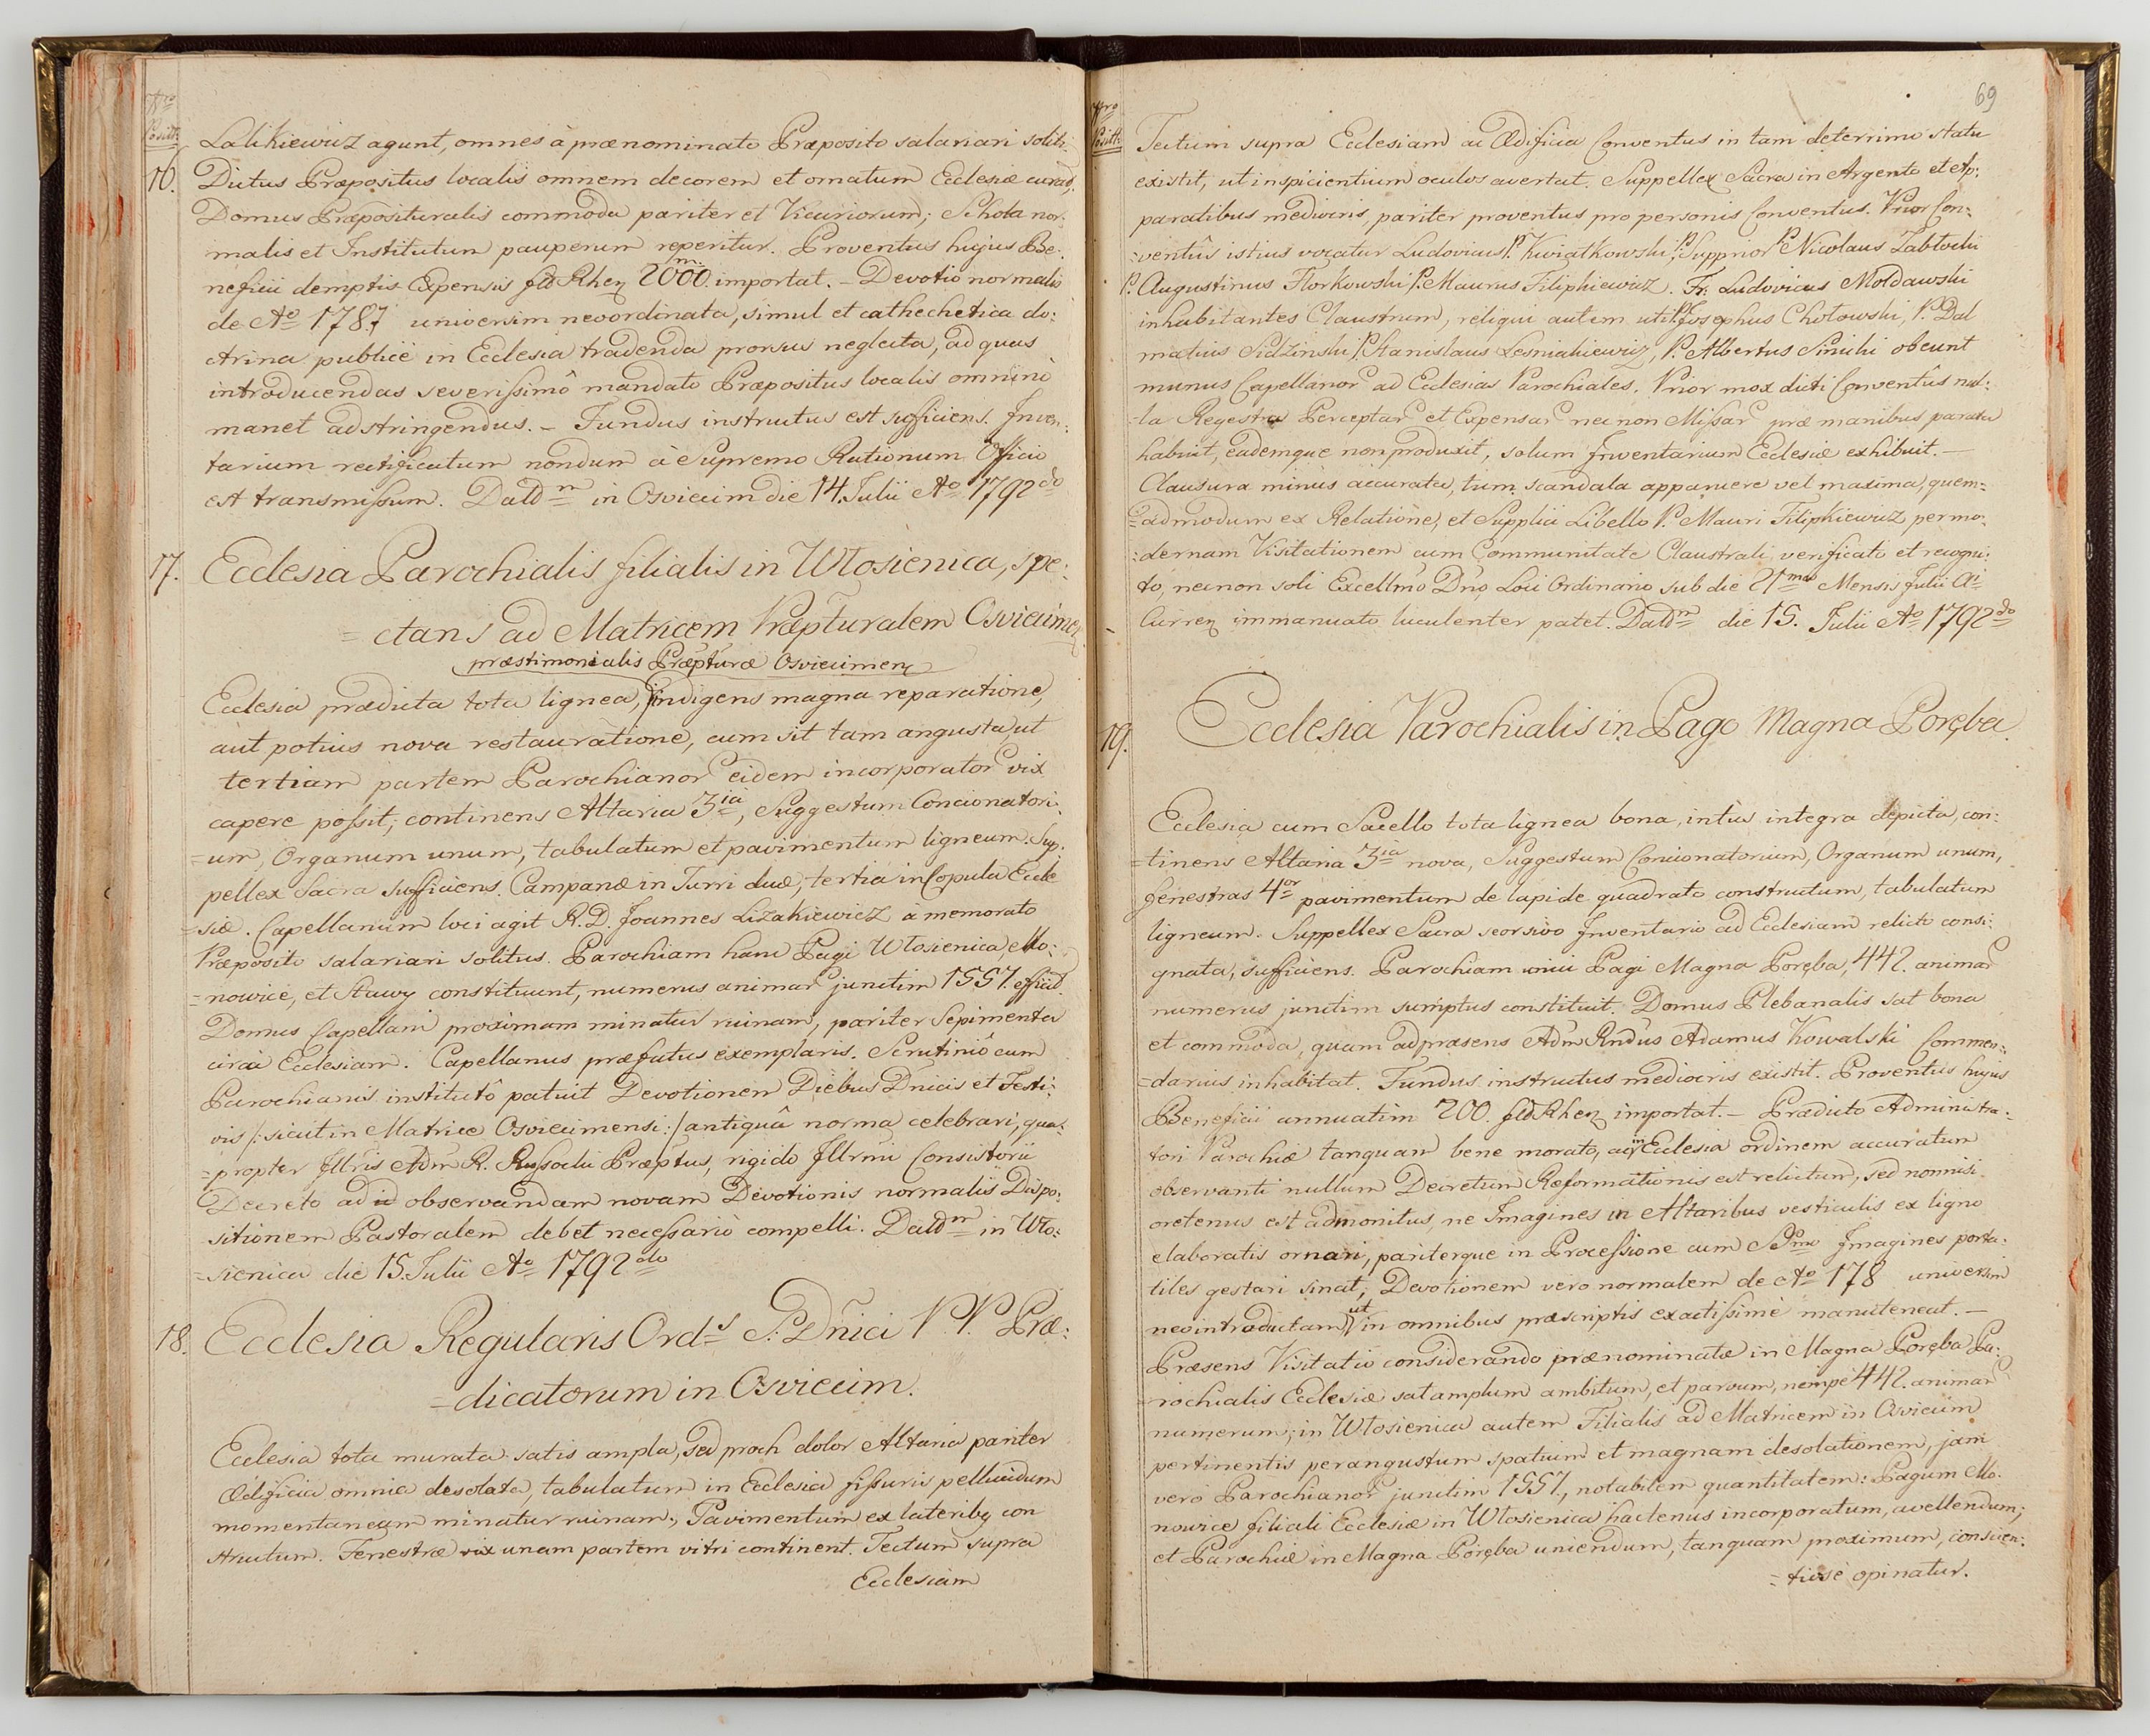 Nro
Posit:
Lalikiewicz agunt, omnes à prænominato Præposito salariari soliti.
16. Dictus Præpositus localis omnem decorem et ornatum Ecclesiæ curat,
Domus Præposituralis commoda pariter et Vicariorum; Schola nor:
malis et Institutum pauperum reperitur. Proventus hujus Be:
neficii demptis Expensis fld Rhen 2000 importat. – Devotio normalis
de Ao 1787 universim neoordinata, simul et cathechetica do:
ctrina publicè in Ecclesia tradenda prorsus neglecta, ad quas
introducendas severissimô mandato Præpositus localis omninò
manet adstringendus. – Fundus instructus est sufficiens. Inven:
tarium rectificatum nondum à Supremo Rationum Officio
est transmissum. Datum in Osviecim die 14. Julii Ao 1792do
17. Ecclesia Parochialis filialis in Wlosienica, spe:
= ctans ad Matricem Præpturalem Osviecimen
præstimonialis Præpturæ Osviecimen
Ecclesia prædicta tota lignea, indigens magna reparatione,
aut potius nova restauratione, cum sit tam angusta, ut
tertiam partem Parochianor eidem incorporator vix
capere possit; continens Altaria 3ia, Suggestum Concionatori:
=um, Organum unum, tabulatum et pavimentum ligneum. Sup:
pellex Sacra sufficiens. Campanæ in Turri duæ, tertia in Copula Eccle
=siæ. Capellanum loci agit R. D. Joannes Lizakiewicz à memorato
Præposito salariari solitus. Parochiam hanc Pagi Wlosienica, Mo:
=nowice, et Stawy constituunt, numerus animar junctim 1557. efficit.
Domus Capellani proximam minatur ruinam, pariter Sepimenta
circa Ecclesiam. Capellanus præfatus exemplaris. Scrutiniô cum
Parochianis institutô patuit Devotionem Diebus Dnicis et Festi:
vis /: sicut in Matrice Osviecimensi :/ antiquâ norma celebrari, qua:
=propter Illris Adm R. Russocki Præptus, rigido Illrmi Consistorii
Decreto ad id observandam novam Devotionis normalis Dispo:
sitionem Pastoralem debet necessariò compelli. Datum in Wlo:
=sienica die 15. Julii Ao 1792do
18. Ecclesia Regularis Ords S. Dnici P.P. Præ:
=dicatorum in Osviecim.
Ecclesia tota murata satis ampla, sed proh dolor Altaria pariter
Ædificia omnia desolata, tabulatum in Ecclesia fissuris pellucidum
momentaneam minatur ruinam, Pavimentum ex lateribq con
structum. Fenestræ vix unam partem vitri continent. Tectum supra
Ecclesiam
69
Nro
Posit:
Tectum supra Ecclesiam ac Ædificia Conventus in tam deterrimo statu
existit, ut inspicientium oculos avertat. Suppellex Sacra in Argento et Ap:
paratibus mediocris, pariter proventus pro personis Conventus. Prior Con:
=ventûs istius vocatur Ludovicus P. Kwiatkowski, Supprior P. Nicolaus Zablocki
P. Augustinus Florkowski P. Maurus Filipkiewicz. Fr. Ludovicus Moldawski
inhabitantes Claustrum, reliqui autem uti P. Josephus Cholowski, P. Dal
matius Sidzinski P. Stanislaus Lesniakiewicz, P. Albertus Sinicki obeunt
munus Capellanor ad Ecclesias Parochiales. Prior mox dicti Conventûs nul:
=la Regestra Perceptar et Expensar nec non Missar præ manibus parata
habuit, eademque non produxit, solum Inventarium Ecclesiæ exhibuit. –
Clausura minùs accurata, tum scandala apparuere vel maxima, quem:
=admodum ex Relatione, et Supplici Libello P. Mauri Filipkiewicz per mo:
:dernam Visitationem cum Communitate Claustrali verificato et recogni:
to, nec non soli Excellmo Dno Loci Ordinario sub die 21ma Mensis Julii Ai
Curren immanuato luculenter patet. Datum die 15. Julii Ao 1792do
19. Ecclesia Parochialis in Pago Magna Poręba.
Ecclesia cum Sacello tota lignea bona, intùs integra depicta, con:
=tinens Altaria 3ia nova, Suggestum Concionatorium, Organum unum,
fenestras 4or pavimentum de lapide quadrato constructum, tabulatum
ligneum. Suppellex Sacra seorsivo Inventario ad Ecclesiam relicto consi:
gnata, sufficiens. Parochiam unici Pagi Magna Poręba, 442. animar
numerus junctim sumptus constituit. Domus Plebanalis sat bona
et commoda, quam ad præsens Adm Rndus Adamus Kowalski Commen:
=darius inhabitat. Fundus instructus mediocris existit. Proventus hujus
Beneficii annuatim 200. fld Rhen importat. – Prædicto Administra:
tori Parochiæ tanquam bene morato, ac in Ecclesia ordinem accuratum
observanti nullum Decretum Reformationis est relictum, sed nonnisi
oretenus est admonitus, ne Imagines in Altaribus vesticulis ex ligno
elaboratis ornari, pariterque in Processione cum SSmo Imagines porta:
tiles gestari sinat, Devotionem vero normalem de Ao 178 universim
neointroductam, ut in omnibus præscriptis exactissimè manuteneat. –
Præsens Visitatio considerando prænominatæ in Magna Poręba Pa:
=rochialis Ecclesiæ sat amplum ambitum, et parvum, nempè 442. animar
numerum, in Wlosienica autem Filialis ad Matricem in Osviecim
pertinentis perangustum spatium et magnam desolationem, jam
verò Parochianor junctim 1557, notabilem quantitatem: Pagum Mo:
nowice filiali Ecclesiæ in Wlosienica hactenus incorporatum, avellendum;
et Parochiæ in Magna Poręba uniendum, tanquam proximum, conscien:
=tiosè opinatur.